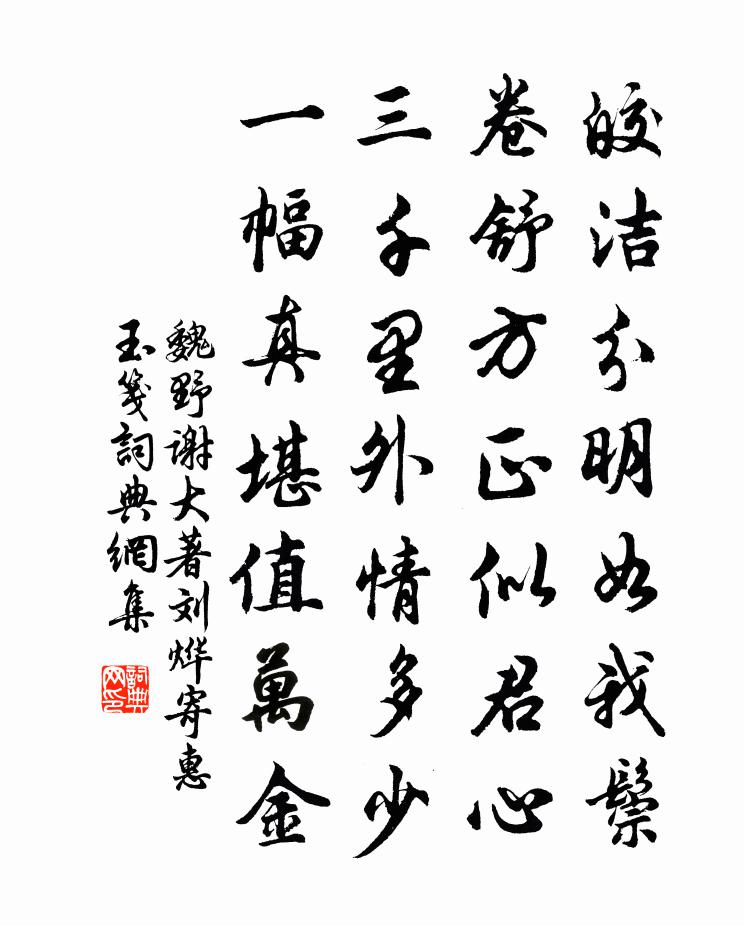 皎洁分明如我鬓
卷舒方正似君心
三千里外情多少
一幅真堪值萬金
魏野谢大著刘烨寄惠
玉笺詞典網集
詞典
网印